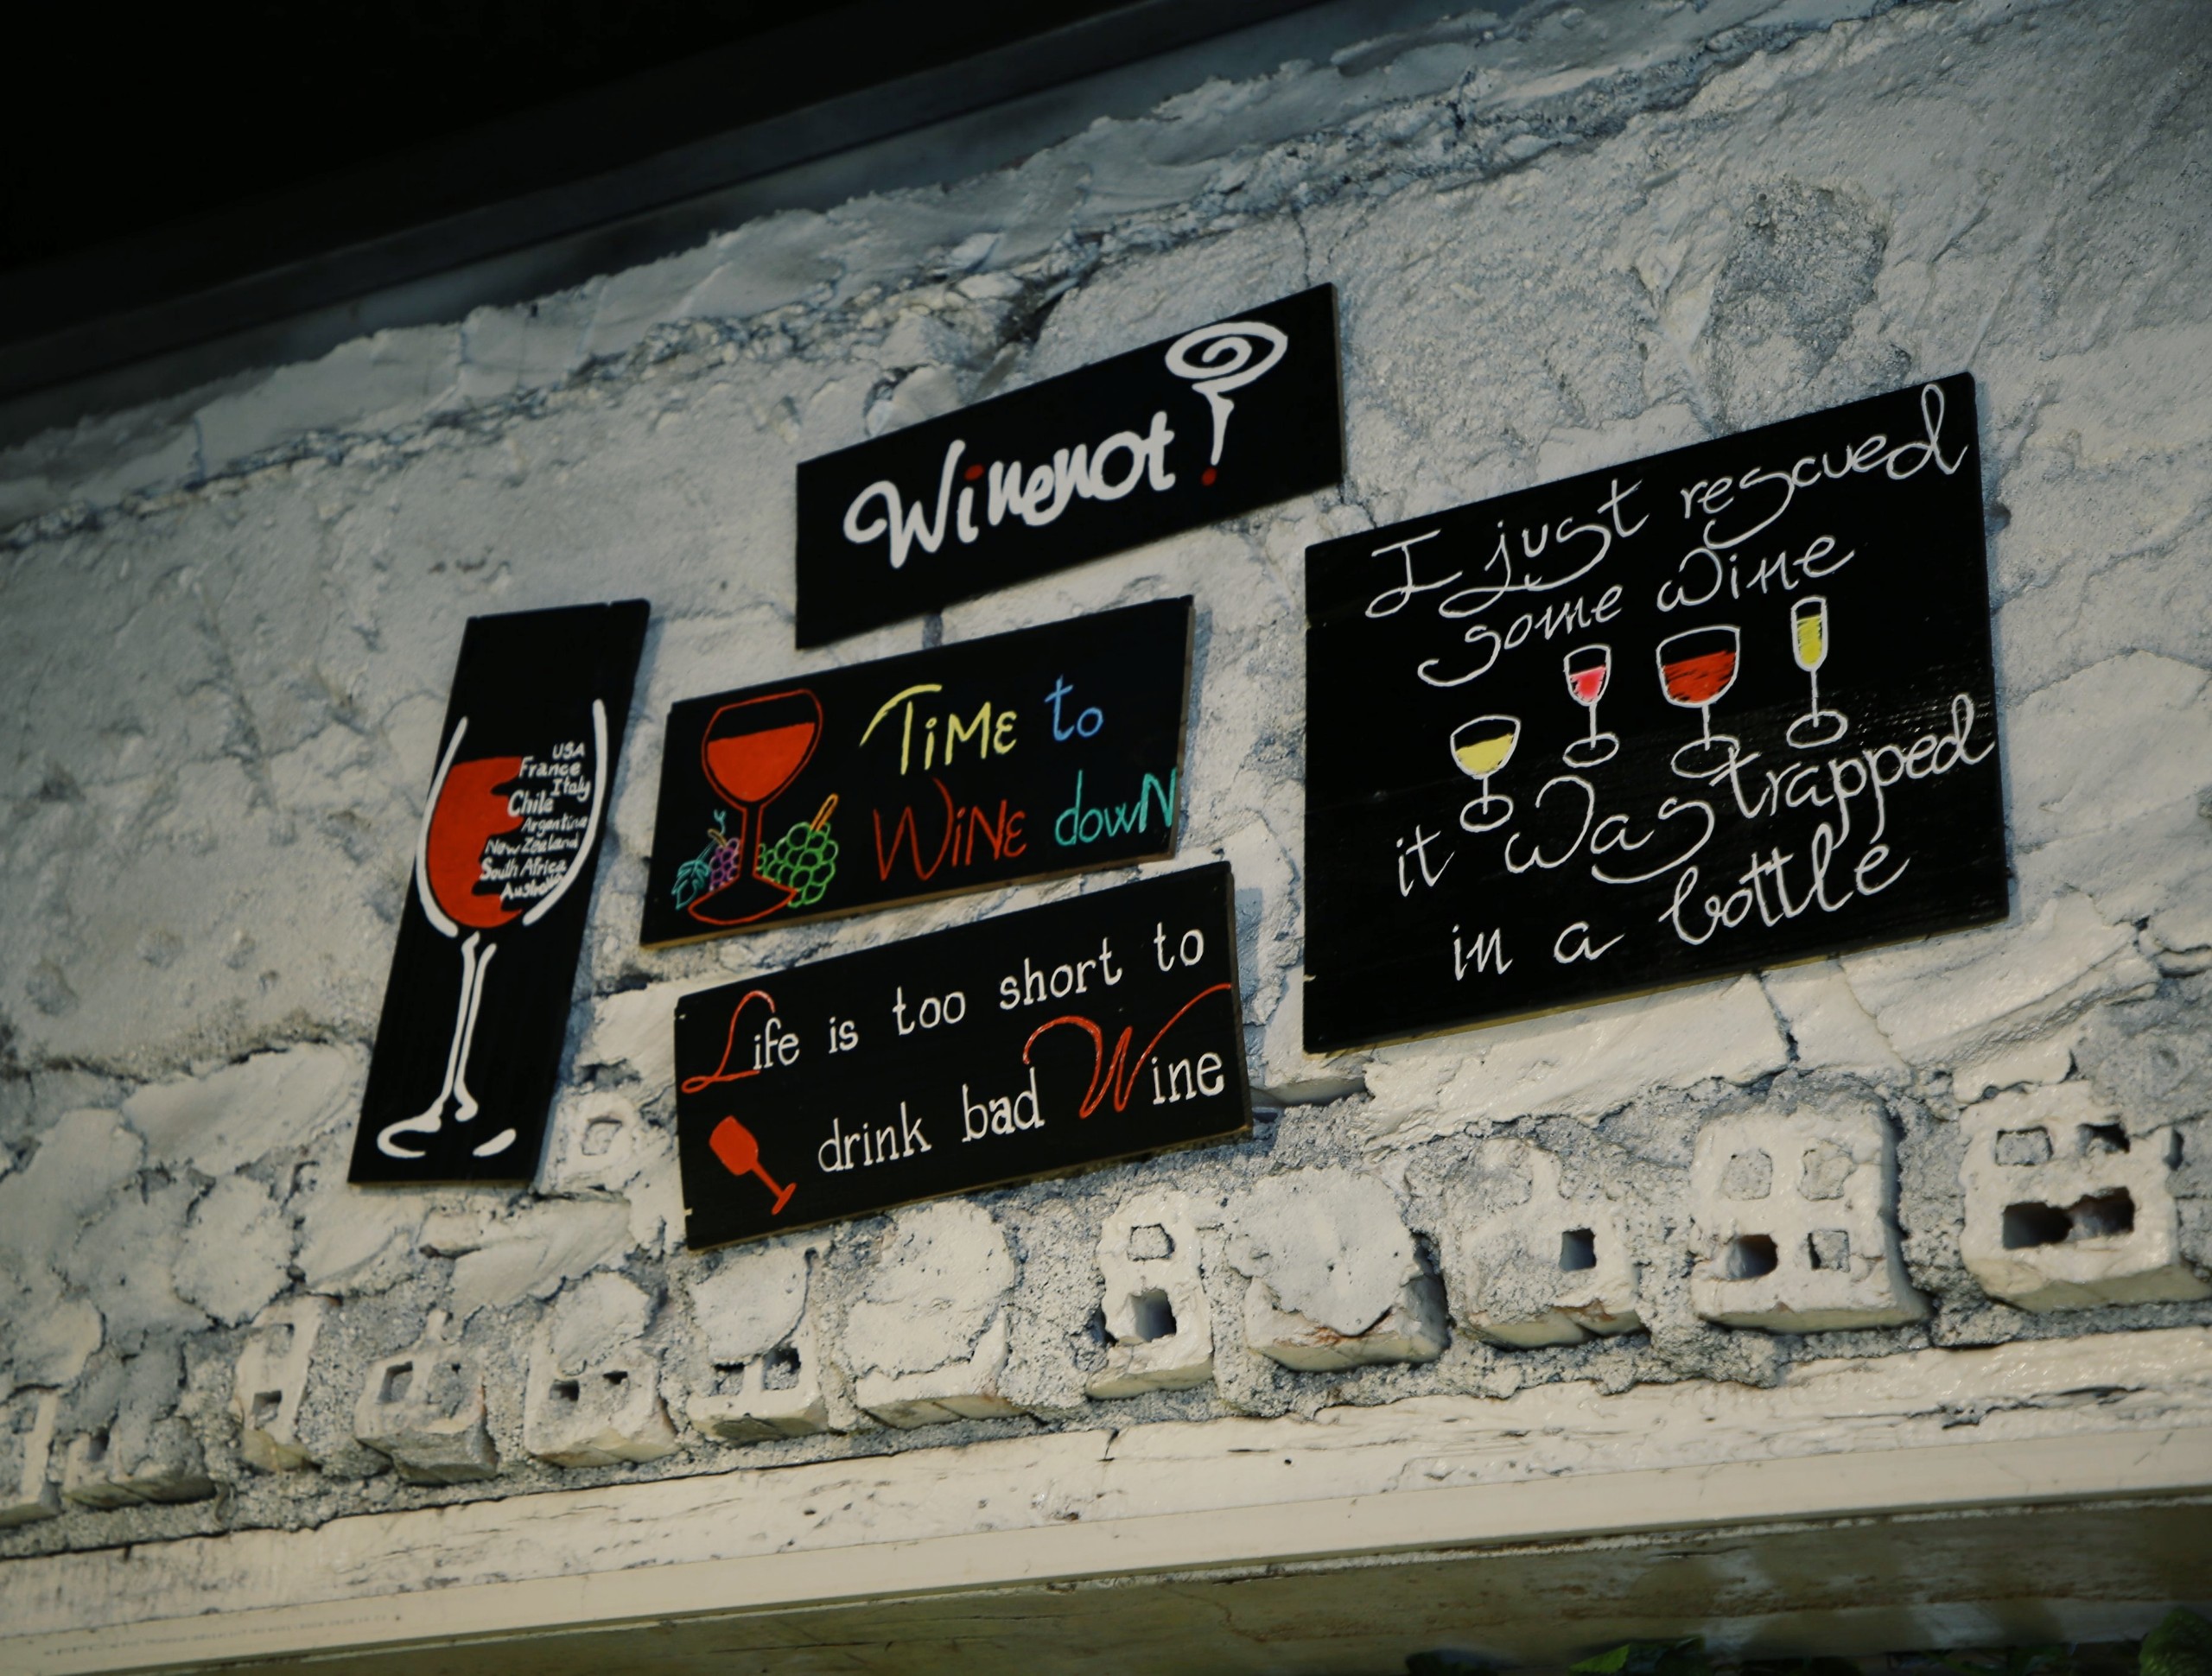 Winenot?
USA
France
Italy
Chile
Argentina
New Zealand
South Africa
Australia
TiME to
WiNE dowN
Life is too short to
drink bad Wine
I just rescued
some wine
it was trapped
in a bottle